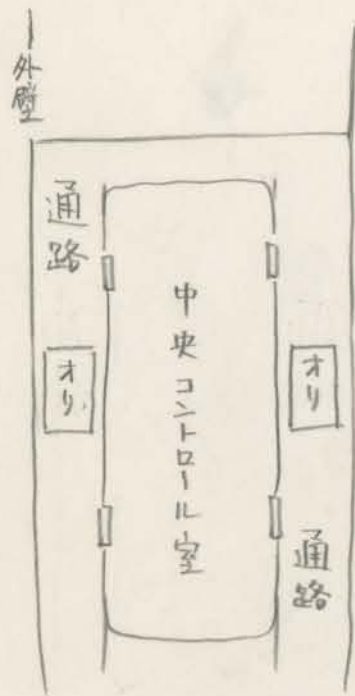 外壁
通路
オリ
中央コントロール室
オリ
通路